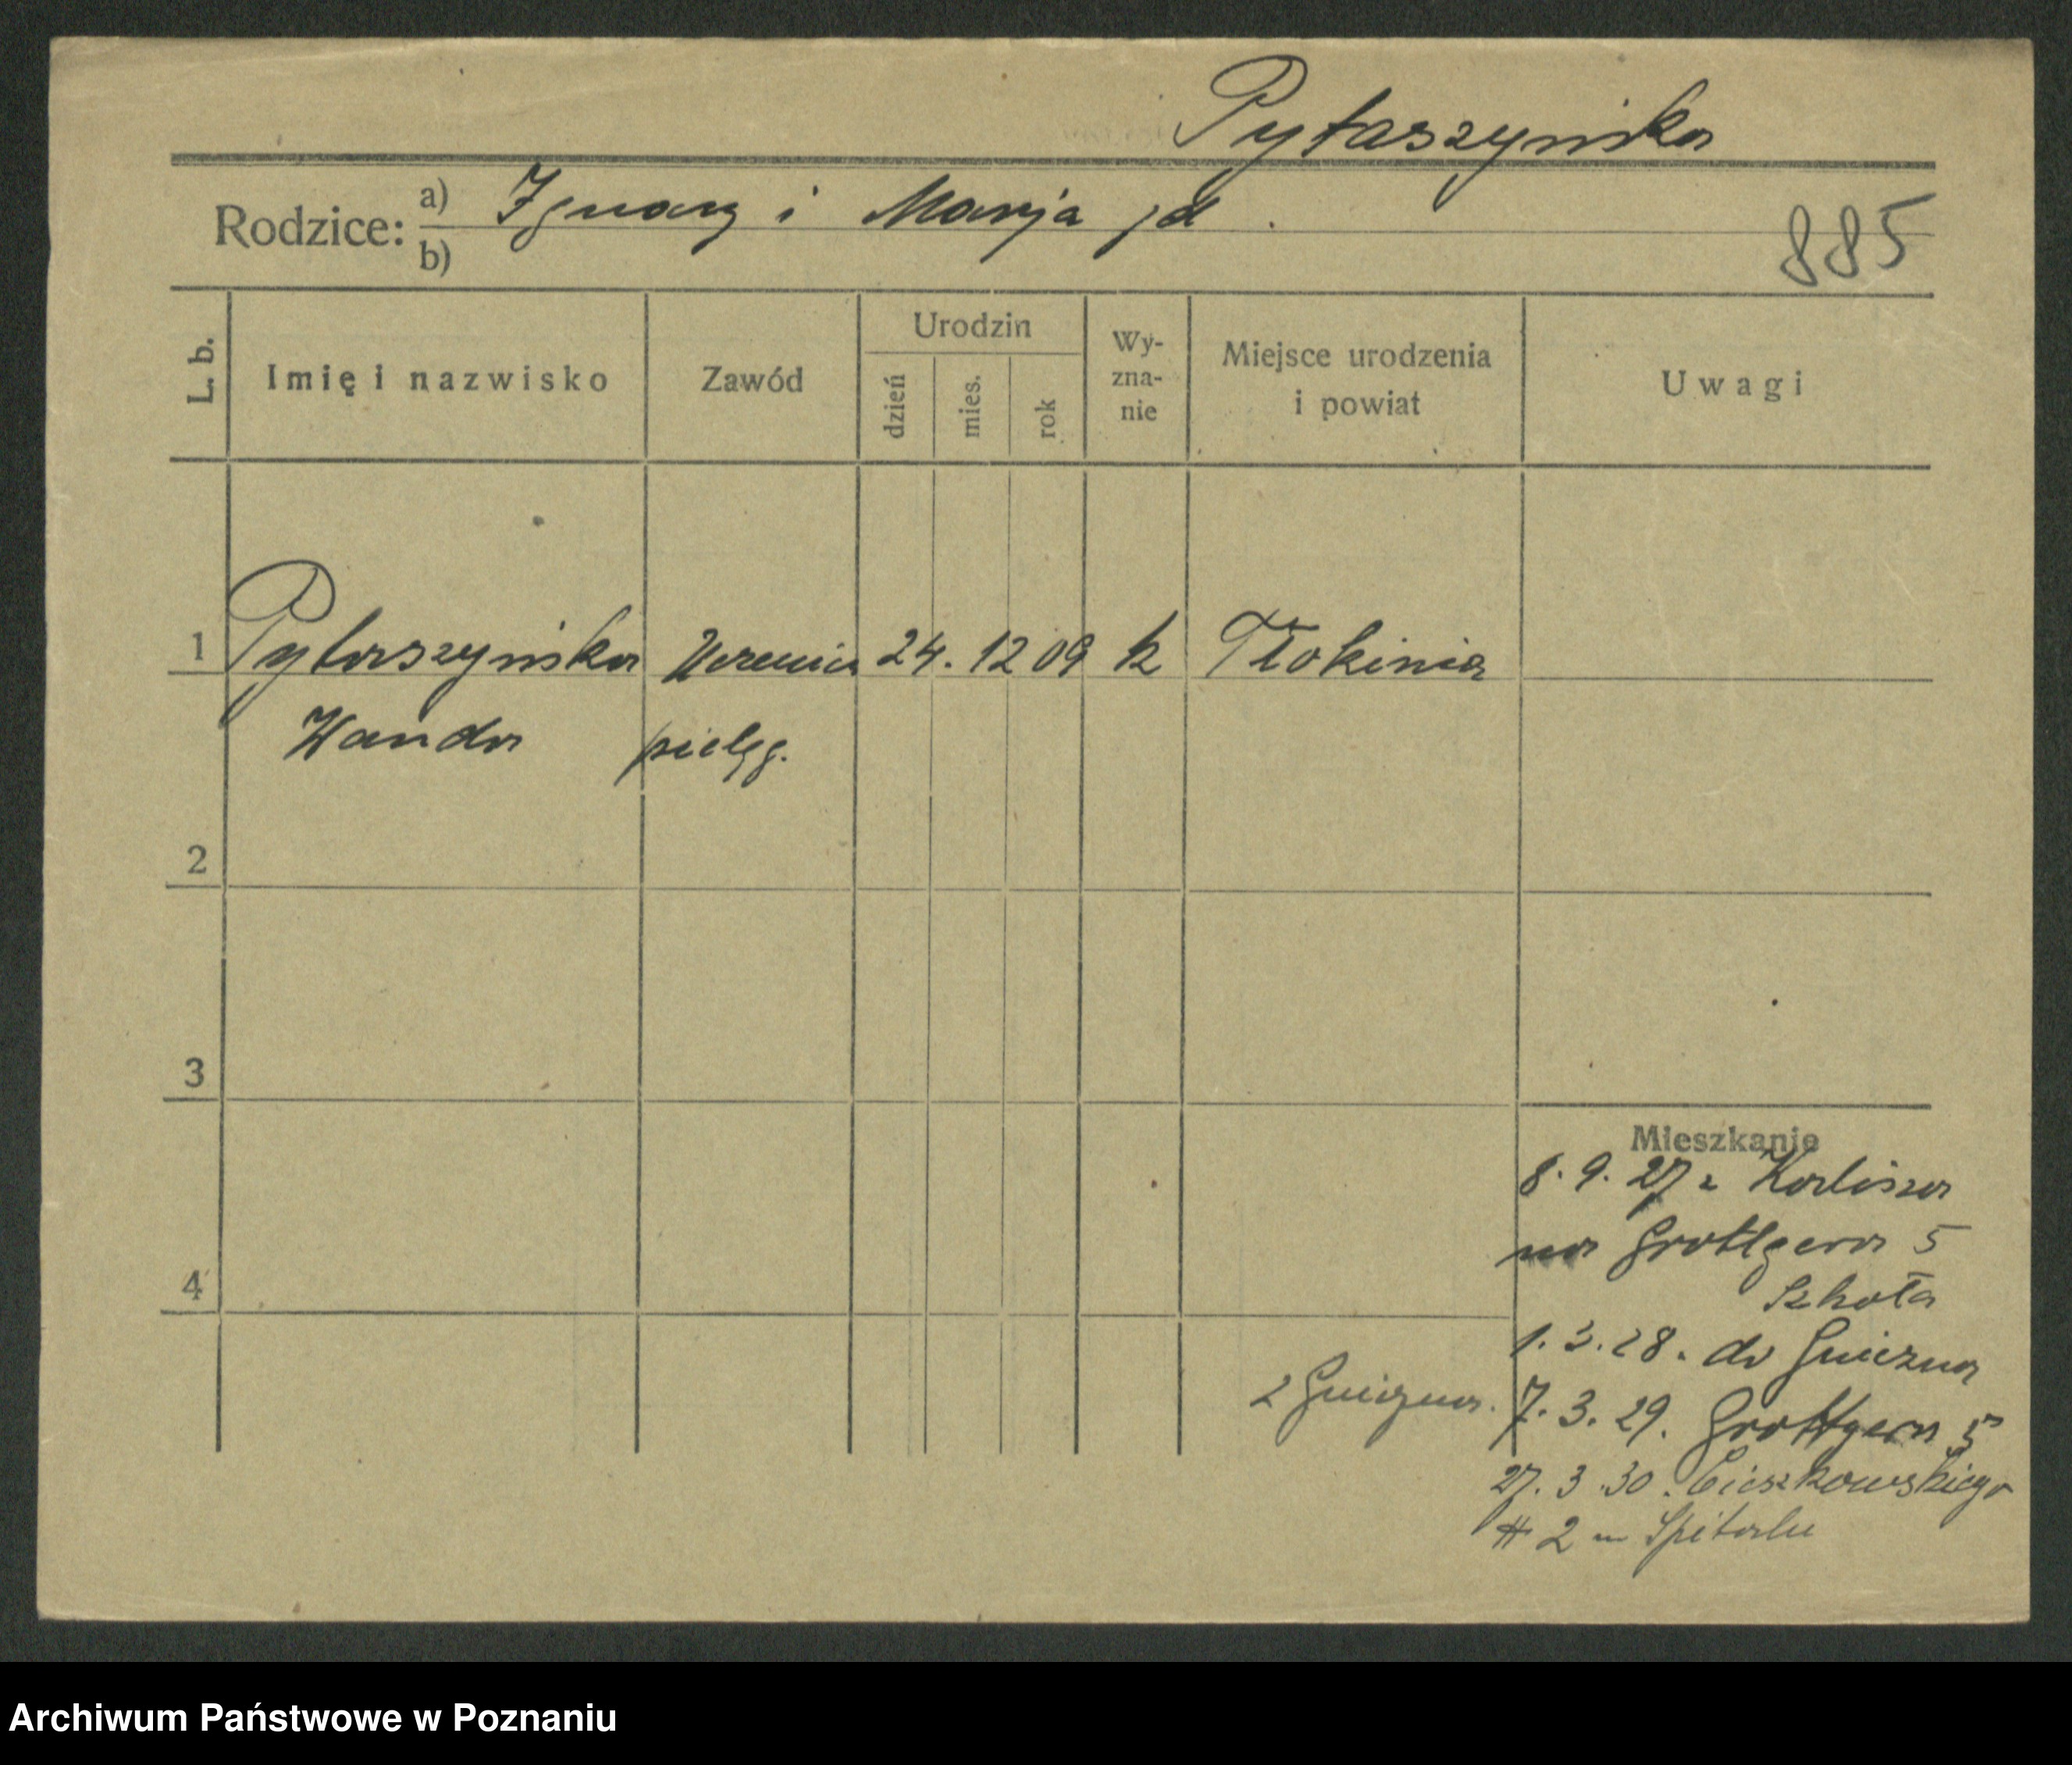 Pytaszyńska
Rodzice: a) Ignacy i Marja jd.
b)
885
L. b.
Imię i nazwisko
Zawód
Urodzin
dzień
mies.
rok
Wy-
zna-
nie
Miejsce urodzenia
i powiat
Uwagi
1 Pytaszyńska Uczenica 24. 12 09 k Tłokinia
Wanda pielęg.
2
3
4
Mieszkanie
8. 9. 27 z Kalisza
na Grottgera 5
Szkoła
1. 3. 28. do Gniezna
z Gniezna. 7. 3. 29. Grottgera 5
27. 3. 30. Cieszkowskiego
# 2 w Szpitalu
Archiwum Państwowe w Poznaniu